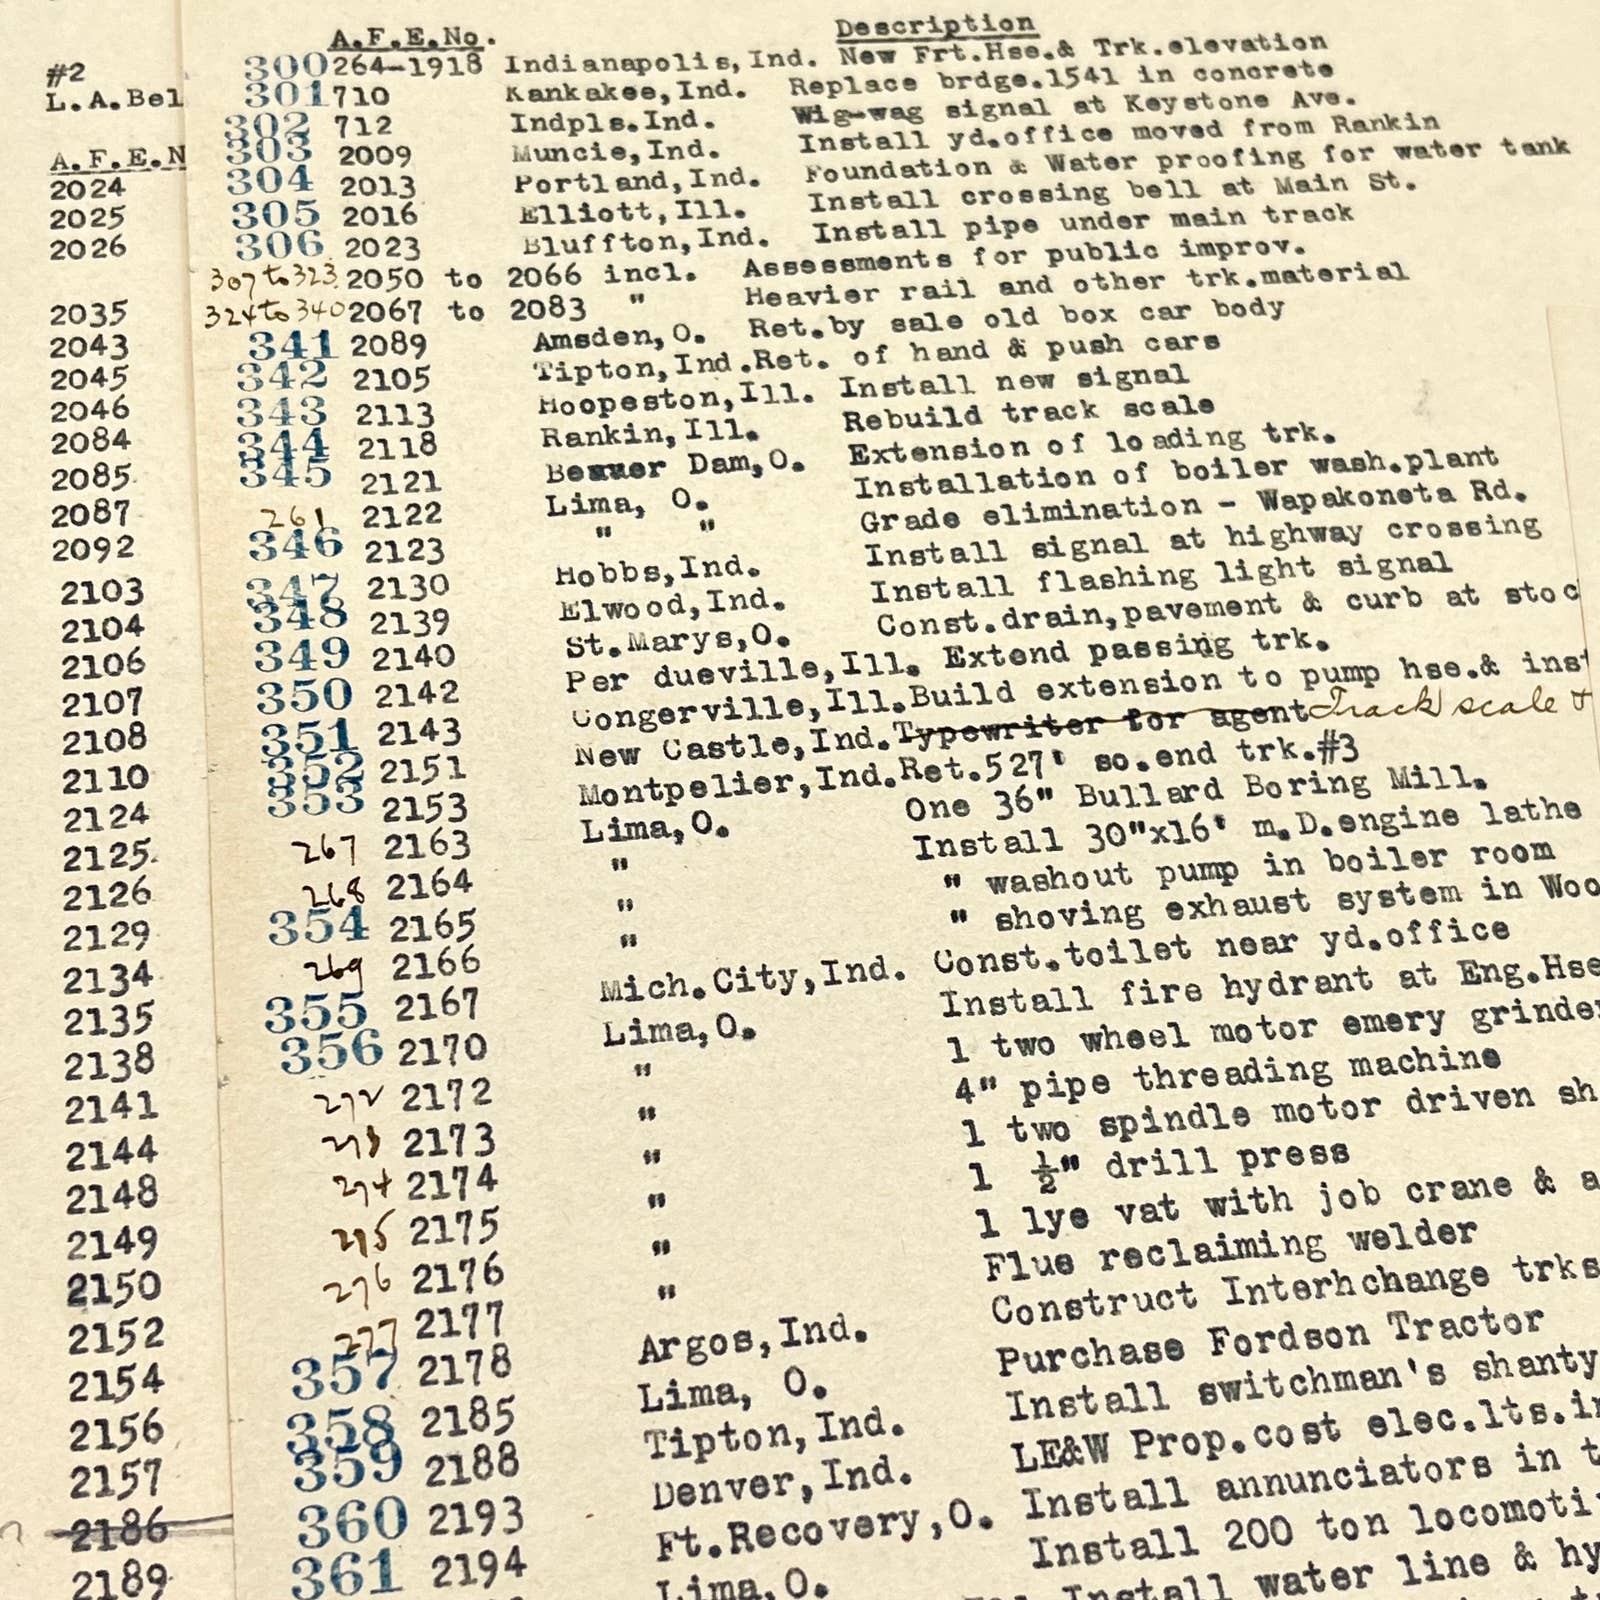 #2
L.A.Bel
A.F.E.N
2024
2025
2026
2035
2043
2045
2046
2084
2085
2087
2092
2103
2104
2106
2107
2108
2110
2124
2125
2126
2129
2134
2135
2138
2141
2144
2148
2149
2150
2152
2154
2156
2157
2186
2189
A.F.E.No. Description
300 264-1918 Indianapolis,Ind. New Frt.Hse.& Trk.elevation
301 710 Kankakee,Ind. Replace brdge.1541 in concrete
302 712 Indpls.Ind. Wig-wag signal at Keystone Ave.
303 2009 Muncie,Ind. Install yd.office moved from Rankin
304 2013 Portland,Ind. Foundation & Water proofing for water tank
305 2016 Elliott,Ill. Install crossing bell at Main St.
306 2023 Bluffton,Ind. Install pipe under main track
307 to 323 2050 to 2066 incl. Assessments for public improv.
324 to 340 2067 to 2083 " Heavier rail and other trk.material
341 2089 Amsden,O. Ret.by sale old box car body
342 2105 Tipton,Ind.Ret. of hand & push cars
343 2113 Hoopeston,Ill. Install new signal
344 2118 Rankin,Ill. Rebuild track scale
345 2121 Beaver Dam,O. Extension of loading trk.
261 2122 Lima, O. Installation of boiler wash.plant
346 2123 " " Grade elimination - Wapakoneta Rd.
347 2130 Hobbs,Ind. Install signal at highway crossing
348 2139 Elwood,Ind. Install flashing light signal
349 2140 St.Marys,O. Const.drain,pavement & curb at stoc
350 2142 Per dueville,Ill. Extend passing trk.
351 2143 Congerville,Ill.Build extension to pump hse.& inst
352 2151 New Castle,Ind.Typewriter for agent Track scale &
353 2153 Montpelier,Ind.Ret.527' so.end trk.#3
267 2163 Lima,O. One 36" Bullard Boring Mill.
268 2164 " Install 30"x16' m.D.engine lathe
354 2165 " " washout pump in boiler room
269 2166 " " shoving exhaust system in Woo
355 2167 Mich.City,Ind. Const.toilet near yd.office
356 2170 Lima,O. Install fire hydrant at Eng.Hse
272 2172 " 1 two wheel motor emery grinder
273 2173 " 4" pipe threading machine
274 2174 " 1 two spindle motor driven sh
275 2175 " 1 ½" drill press
276 2176 " 1 lye vat with job crane & a
277 2177 " Flue reclaiming welder
357 2178 Argos,Ind. Construct Interhchange trks
358 2185 Lima, O. Purchase Fordson Tractor
359 2188 Tipton,Ind. Install switchman's shanty
360 2193 Denver,Ind. LE&W Prop.cost elec.lts.in
361 2194 Ft.Recovery,O. Install annunciators in t
Lima,O. Install 200 ton locomoti
Install water line & hy